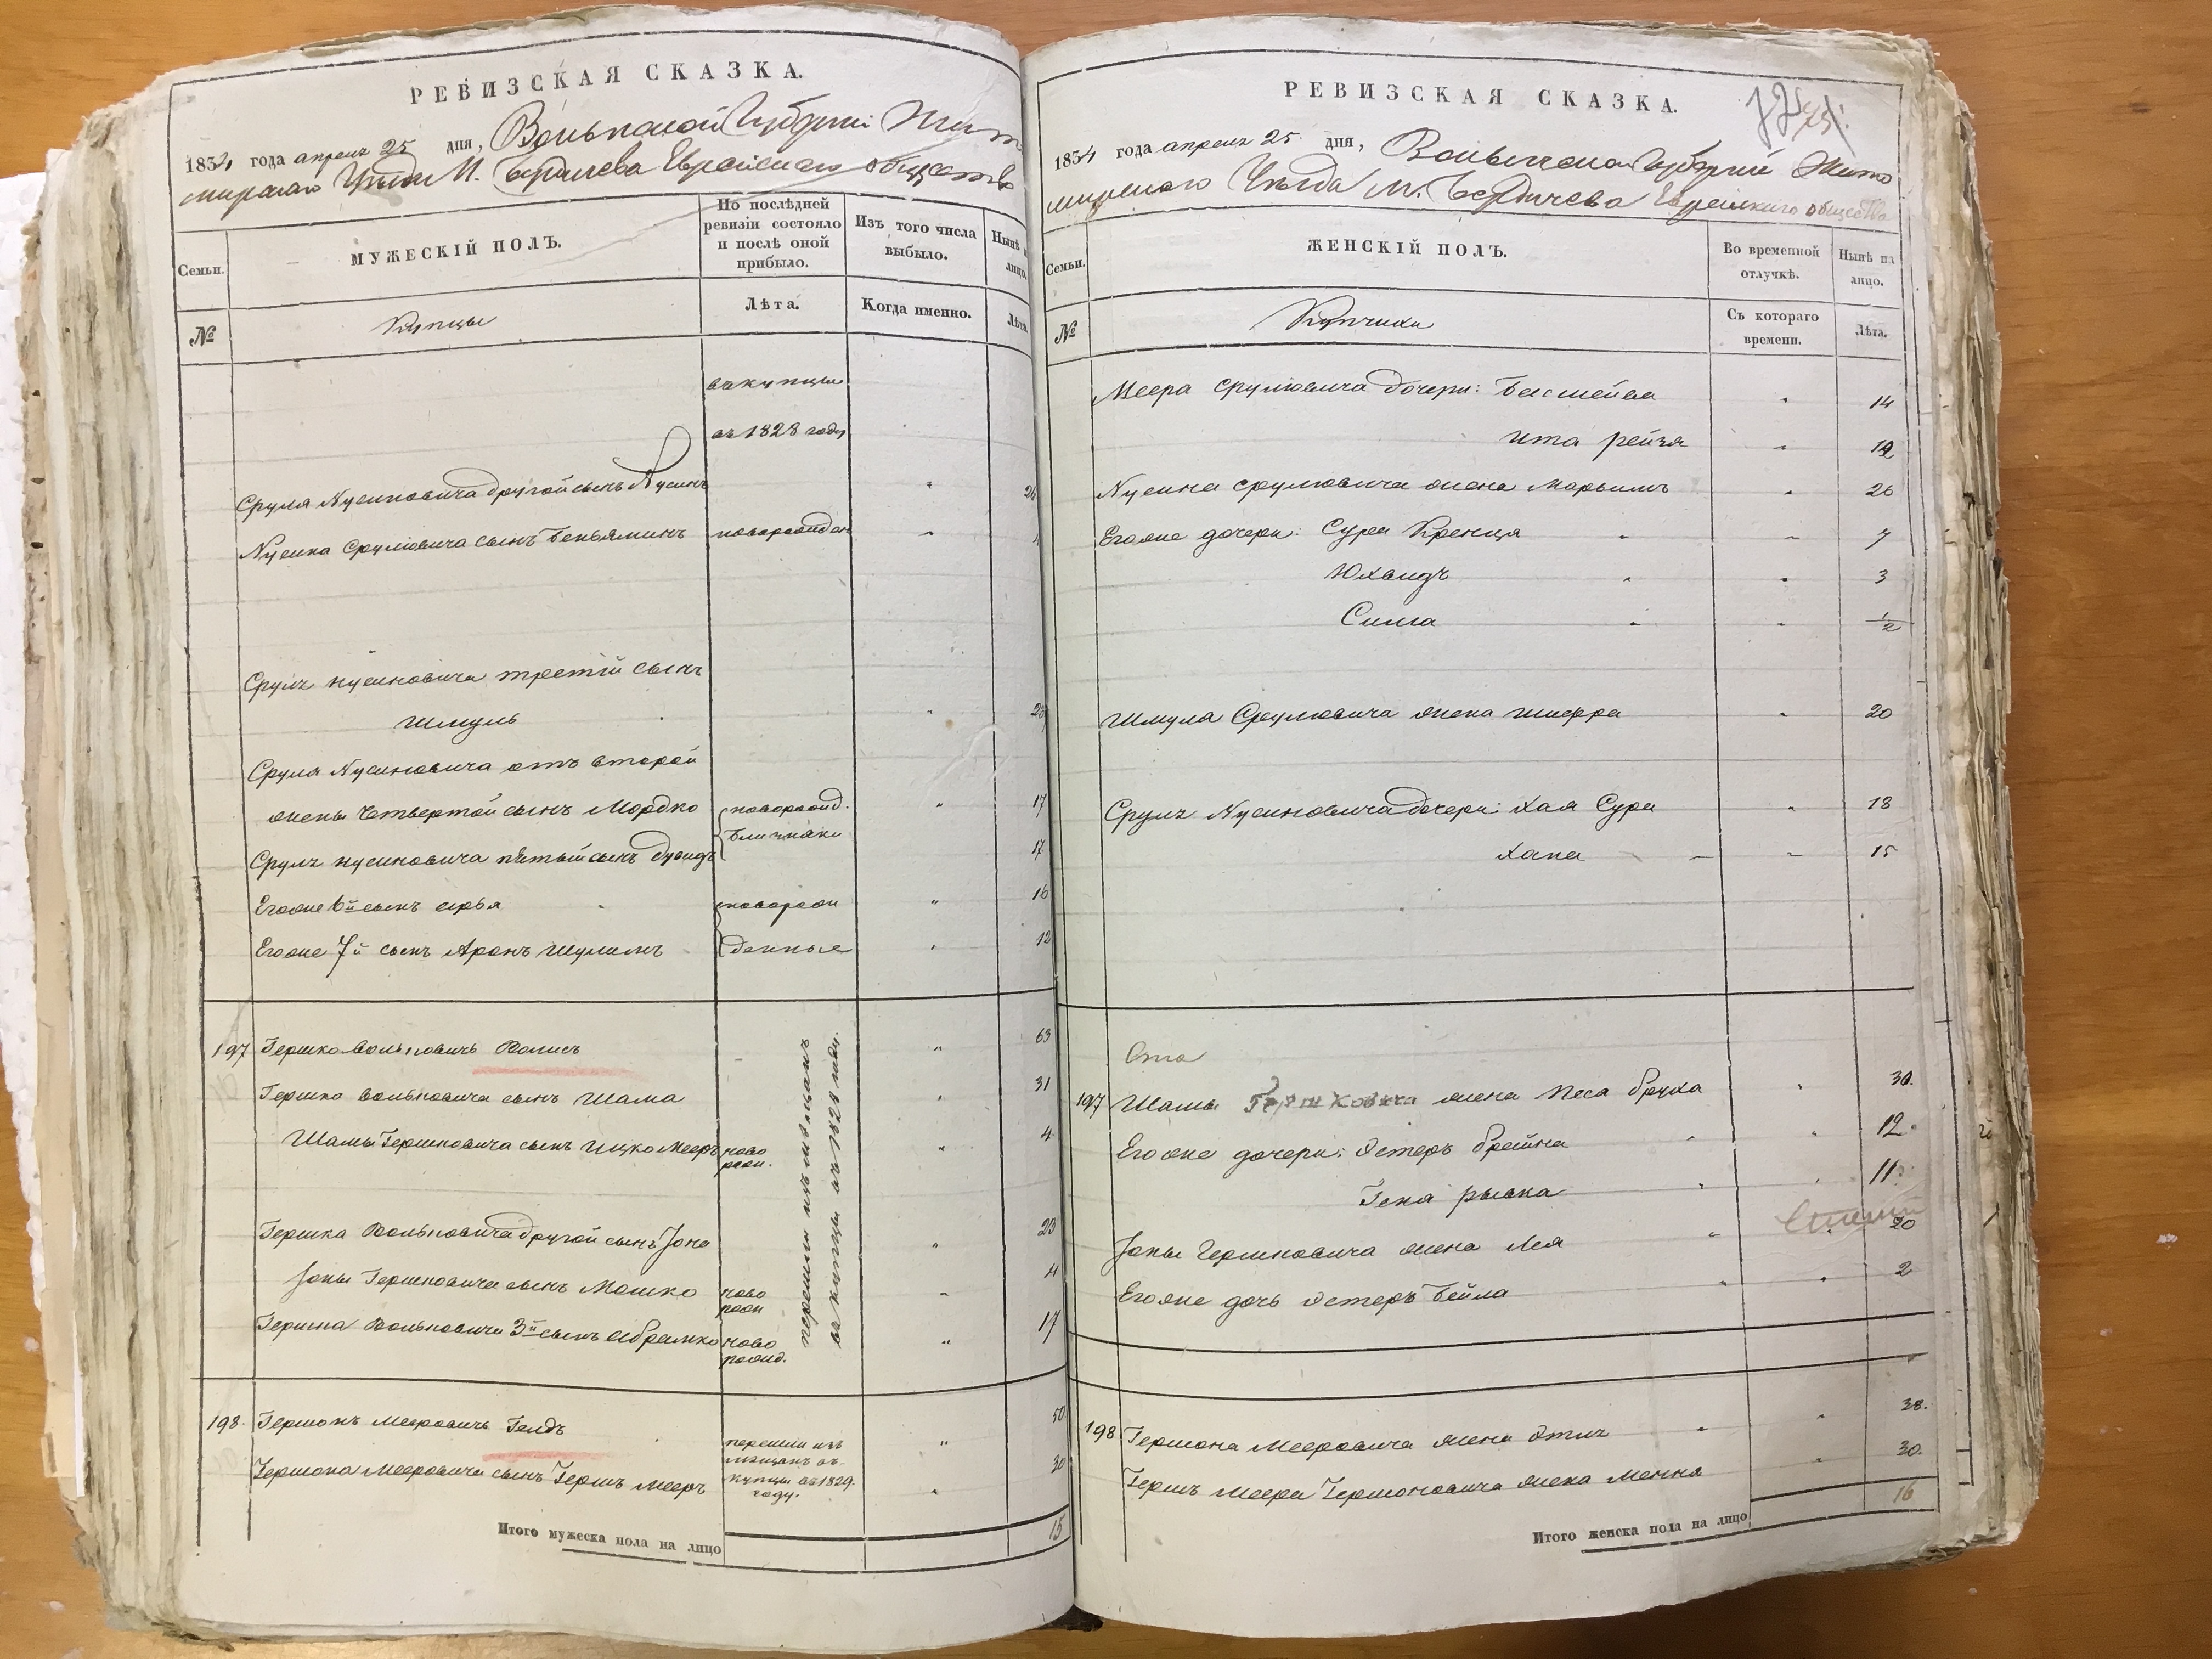 РЕВИЗСКАЯ СКАЗКА.
1834 года апреля 25 дня, Волынской Губернии Жито
мирскаго Уезда М. Бердичева Еврейскаго общества
Семьи.
МУЖЕСКІЙ ПОЛЪ.
По послѣдней ревизіи состояло и послѣ оной прибыло.
Изъ того числа выбыло.
Нынѣ на лицо.
№
Купцы
Лѣта.
Когда именно.
Лѣта.
въ купцы
въ 1828 году
Сруля Нусиновича другой сынъ Нусинъ
Нусина Срулювича сынъ Беньяминъ новорожден
Сруля Нусиновича третій сынъ
Шмуль
Сруля Нусиновича отъ второй
жены четвертой сынъ Мордко новорожд. 17
близнаки
Сруля Нусиновича пятый сынъ Дувидъ 17
Егоже 6й сынъ 16
новорож
Егоже 7й сынъ Аронъ Шулимъ денные 12
197 Гершко Вольковичъ 63
Гершка Вольковича сынъ Шама 31
Шамы Гершковича сынъ Ицко Мееръ ново рож. 4
Гершка Вольковича другой сынъ Іона 23
Іоны Гершковича сынъ Мошко ново рож 4
Гершка Вольковича 3й сынъ Абрамко ново рожд. 17
перешли изъ мещанъ
въ купцы въ 1828 году.
198 Гершонъ Мееровичъ Гелдъ 50
Гершона Мееровича сынъ Гершъ Мееръ 30
перешли изъ
мещанъ въ
купцы въ 1829
году.
Итого мужеска пола на лицо 15
РЕВИЗСКАЯ СКАЗКА.
1834 года апреля 25 дня, Волынской Губерніи Жито
мирскаго Уезда М. Бердичева Еврейскаго общества
Семьи.
ЖЕНСКІЙ ПОЛЪ.
Во временной отлучкѣ.
Нынѣ на лицо.
№
Купчихи
Съ котораго времени.
Лѣта.
Меера Срулювича дочери: Басшейва 14
Ита Рейзя
Нусина Срулювича жена Марьимъ 26
Егоже дочери: Сура Кренця 7
Юхавидъ 3
Сима 1/2
Шмуля Срулювича жена Шифра 20
Сруля Нусиновича дочери: Хая Сура 18
Хана 15
197 Шамы Гершковича жена Песа Бруха 30.
Егоже дочери: Эстеръ Брайна 12
Геня Рывка 11
Іоны Гершковича жена Лея 20
Егоже дочь Эстеръ Бейла 2
198 Гершона Мееровича жена Этля 38.
Гершъ Меера Гершоновича жена Меня 30.
16
Итого женска пола на лицо